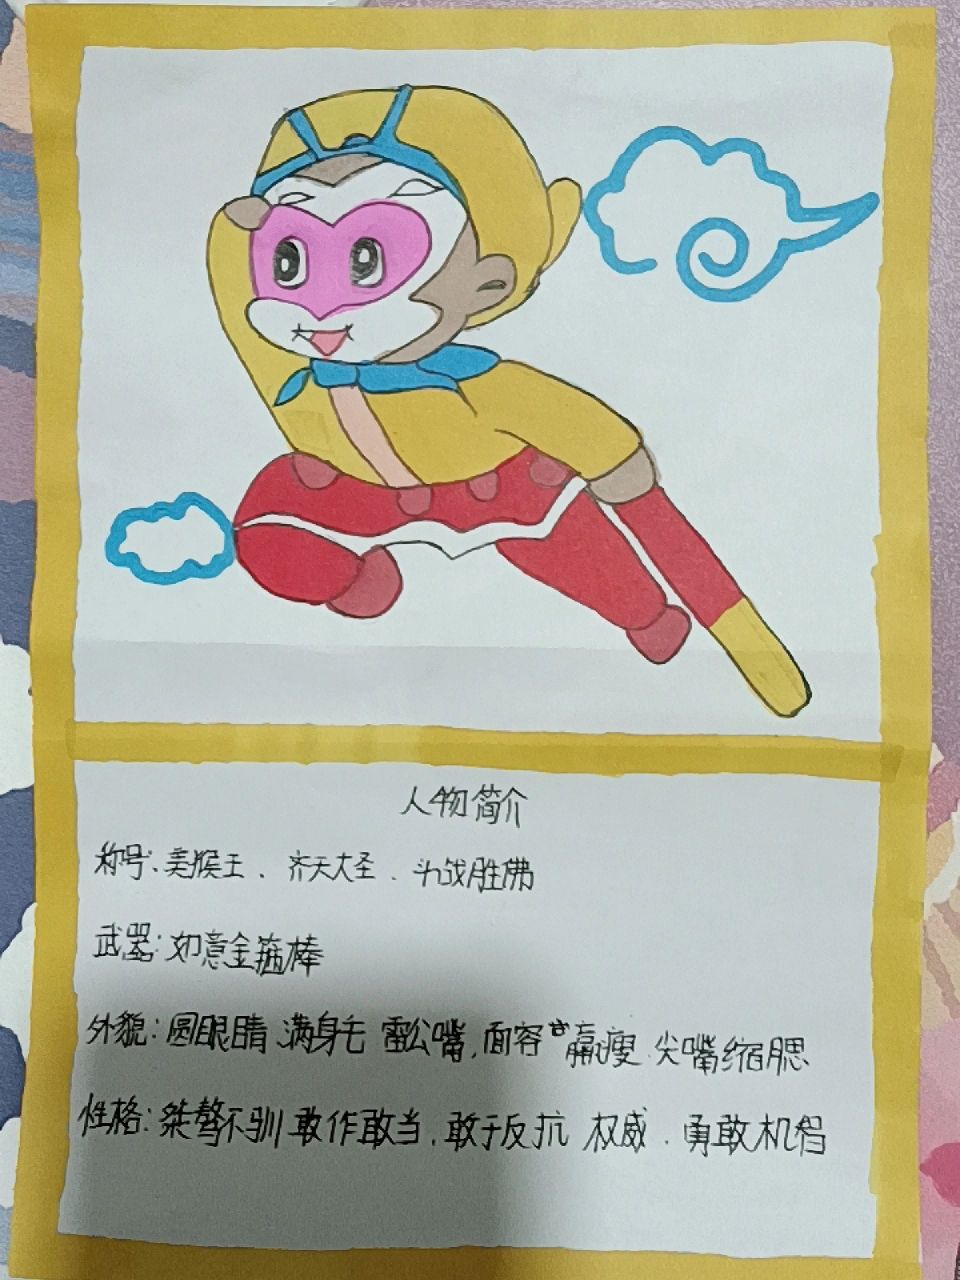 人物简介
称号:美猴王、齐天大圣、斗战胜佛
武器:如意金箍棒
外貌:圆眼睛 满身毛 雷公嘴,面容 羸瘦 尖嘴缩腮
性格:桀骜不驯 敢作敢当,敢于反抗 权威、勇敢机智